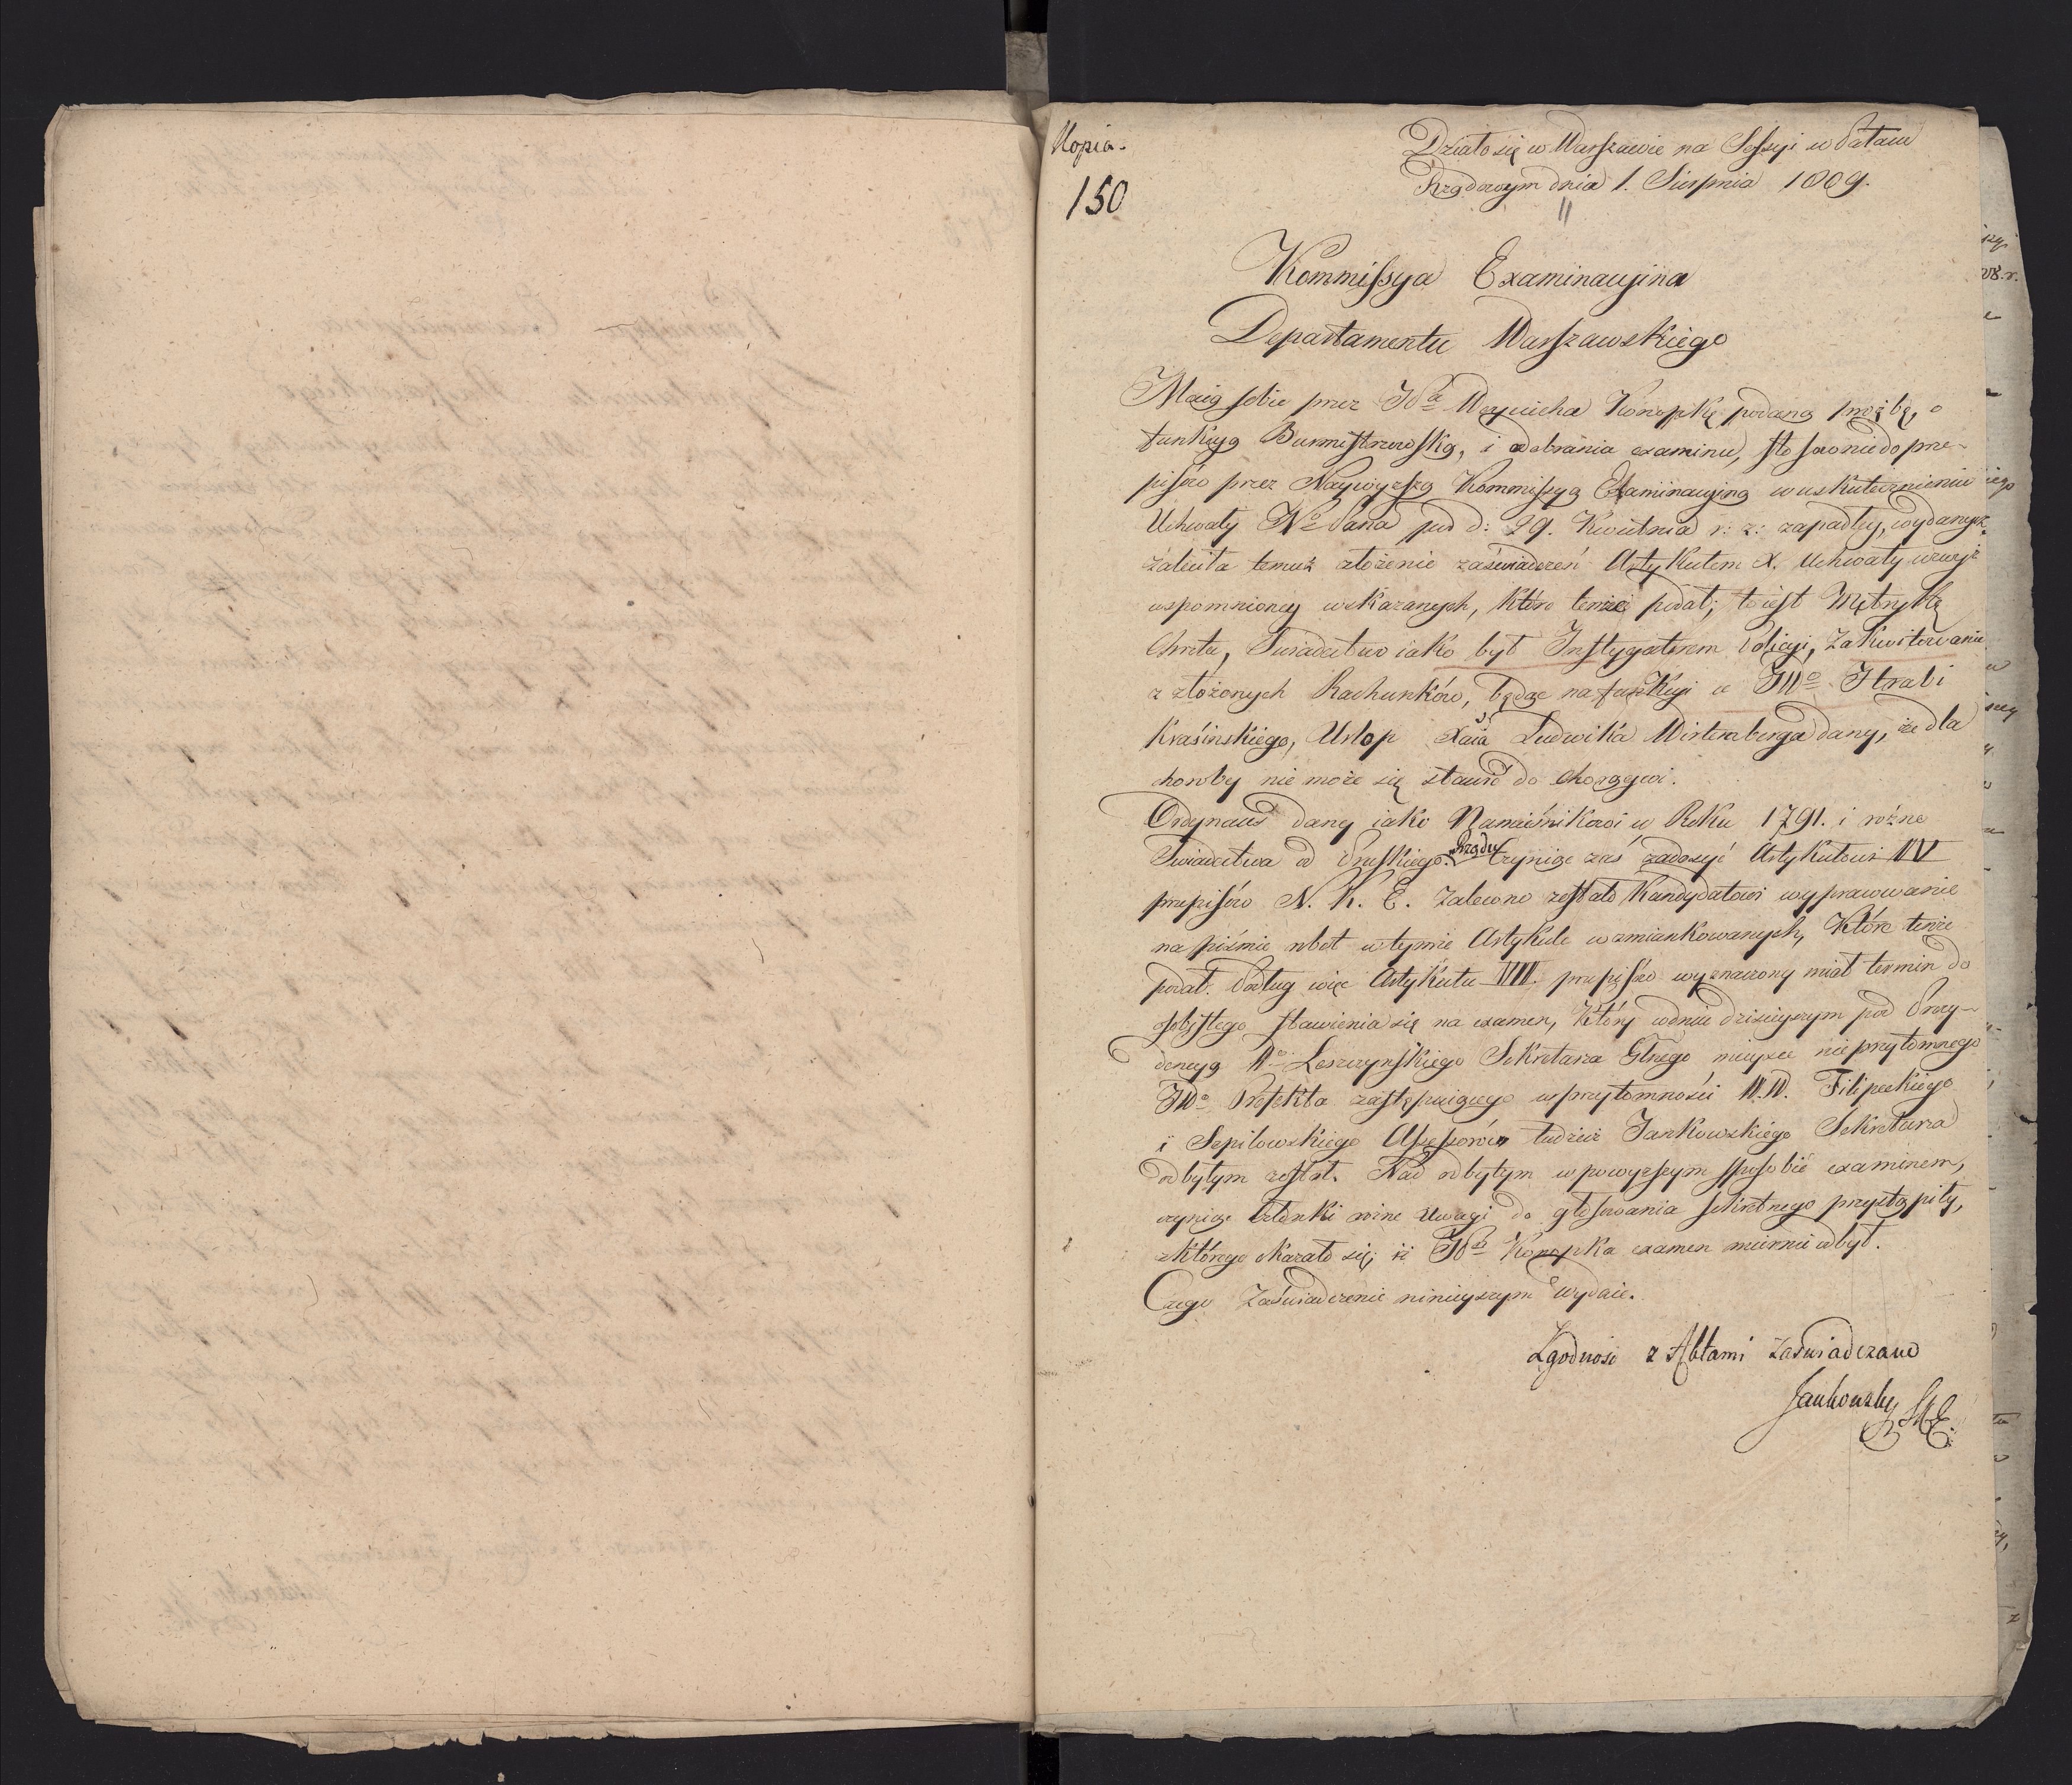 Kopia.
150
Działo się w Warszawie na Sessyi w Pałacu
Rządowym dnia 1. Sierpnia 1809.
Kommissya Examinacyina
Departamentu Warszawskiego
Maiąc sobie przez Wo Woyciecha Konopkę podaną prożbę, o
funkcyą Burmistrzowską, i odebrania examinu, stosownie do prze-
pisów przez Naywyższą Kommissyą Examinacyiną w uskutecznieniu
Uchwały No Pana pod d: 29. Kwietnia r: z: zapadłey, wydanych,
zaleciła temuż złożenie zaświadczeń Artykułem X. Uchwały wzwyż
wspomnioney wskazanych, które tenże podał; to iest Mętrykę
Chrztu, Swiadectwo iako był Instygatorem Policyi, Zakwitowanie
z złożonych Rachunków, będąc na funkcyi u JWo Hrabi
Krasińskiego, Urlop Xcia Ludwika Wirtemberga dany, że dla
choroby nie może się stawić do chorągwi.
Ordynans dany iako Namieśnikowi w Roku 1791. i rożne
Swiadectwa od Pruskiego Rządu. Czyniąc zaś zadosyć Artykułowi IV
przepisów N. K. E. zalecono zostało Kandydatowi wypracowanie
na piśmie robot w teymże Artykule wzmiankowanych, które tenże
podał. Podług więc Artykułu VIII. przepisów wyznaczony miał termin do
osobistego stawienia się na examen, który w dniu dzisieyszym pod Prezy-
dencyą Wo Leszczyńskiego Sekretarza Glnego mieysce nieprzytomnego
JWo Prefekta zastępuiącego w przytomności W.W. Filipeckiego
i Sepilowskiego Assessorów tudzież Jankowskiego Sekretarza
odbytym został. Nad odbytym w powyższym sposobie examinem,
czyniąc Członki rożne uwagi do głosowania sekretnego przystąpiły,
z którego okazało się, iż Wo Konopka examen miernie odbył.
Czego Zaświadczenie ninieyszym wydaie.
Zgodność z Aktami zaświadczam
Jankowski SKE.